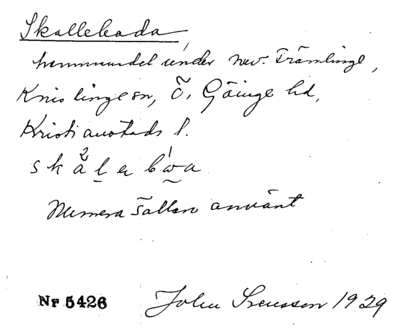 Skallebada
hemmansdel under nov. Främlinge,
Knislinge sn, Ö. Göinge hd,
Kristianstads l.
skålebωa
Numera sällan använt
Nr 5426 John Svensson 1929